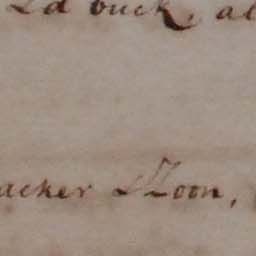 buck, al
acker Room,